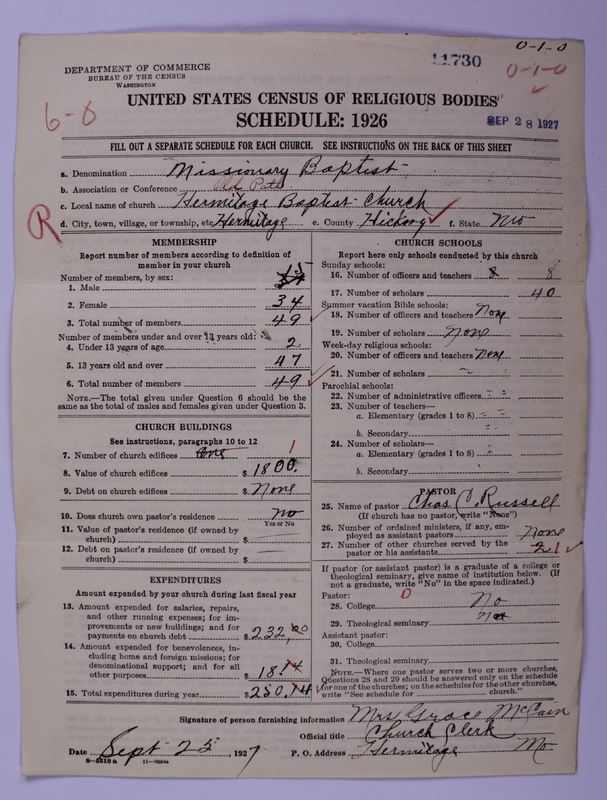 0-1-0
11730
0-1-0
DEPARTMENT OF COMMERCE
BUREAU OF THE CENSUS
WASHINGTON
UNITED STATES CENSUS OF RELIGIOUS BODIES
6-8
SCHEDULE: 1926
SEP 28 1927
FILL OUT A SEPARATE SCHEDULE FOR EACH CHURCH. SEE INSTRUCTIONS ON THE BACK OF THIS SHEET
a. Denomination Missionary Baptist
b. Association or Conference Old Path
c. Local name of church Hermitage Baptist Church
R
d. City, town, village, or township, etc. Hermitage e. County Hickory f. State Mo
MEMBERSHIP
Report number of members according to definition of
member in your church
Number of members, by sex:
1. Male 15
2. Female 34
3. Total number of members 49
Number of members under and over 13 years old:
4. Under 13 years of age 2
5. 13 years old and over 47
6. Total number of members 49
NOTE.—The total given under Question 6 should be
same as the total of males and females given under Question 3.
CHURCH BUILDINGS
See instructions, paragraphs 10 to 12
7. Number of church edifices one 1
8. Value of church edifices $ 1800.
9. Debt on church edifices $ None
10. Does church own pastor's residence No
Yes or No
11. Value of pastor's residence (if owned by
church) $
12. Debt on pastor's residence (if owned by
church) $
EXPENDITURES
Amount expended by your church during last fiscal year
13. Amount expended for salaries, repairs,
and other running expenses; for im-
provements or new buildings; and for
payments on church debt $ 232.00
14. Amount expended for benevolences, in-
cluding home and foreign missions; for
denominational support; and for all
other purposes $ 18.14
15. Total expenditures during year $ 250.14
CHURCH SCHOOLS
Report here only schools conducted by this church
Sunday schools:
16. Number of officers and teachers 8 8
17. Number of scholars 40
Summer vacation Bible schools:
18. Number of officers and teachers None
19. Number of scholars None
Week-day religious schools:
20. Number of officers and teachers None
21. Number of scholars
Parochial schools:
22. Number of administrative officers
23. Number of teachers—
a. Elementary (grades 1 to 8)
b. Secondary
24. Number of scholars—
a. Elementary (grades 1 to 8)
b. Secondary
PASTOR
25. Name of pastor Chas C. Russell
(If church has no pastor, write "None")
26. Number of ordained ministers, if any, em-
ployed as assistant pastors None
27. Number of other churches served by the
pastor or his assistants 2 1
If pastor (or assistant pastor) is a graduate of a college or
theological seminary, give name of institution below. (If
not a graduate, write "No" in the space indicated.)
Pastor: 0
28. College No
29. Theological seminary No
Assistant pastor:
30. College
31. Theological seminary
NOTE.—Where one pastor serves two or more churches,
Questions 28 and 29 should be answered only on the schedule
for one of the churches; on the schedules for the other churches,
write "See schedule for church."
Signature of person furnishing information Mrs Grace McCain
Official title Church Clerk
Date Sept 25, 1927 P. O. Address Hermitage Mo
8-5518a 11-9084a